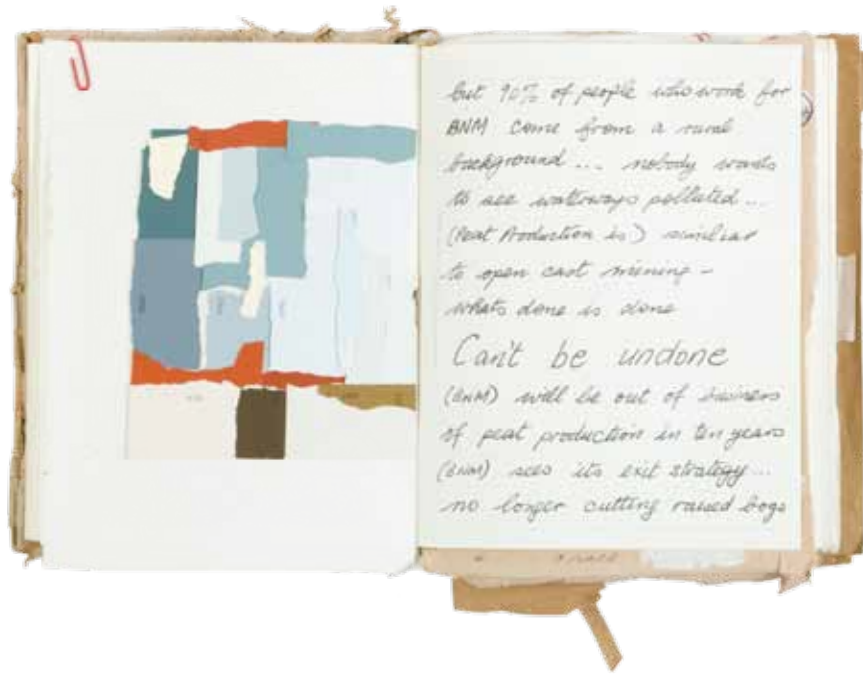 but 90% of people who work for
BNM come from a rural
background ... nobody wants
to see waterways polluted ...
(Peat Production is) similar
to open cast mining -
whats done is done
Can't be undone
(BNM) will be out of business
of peat production in ten years
(BNM) sees its exit strategy ...
no longer cutting raised bogs